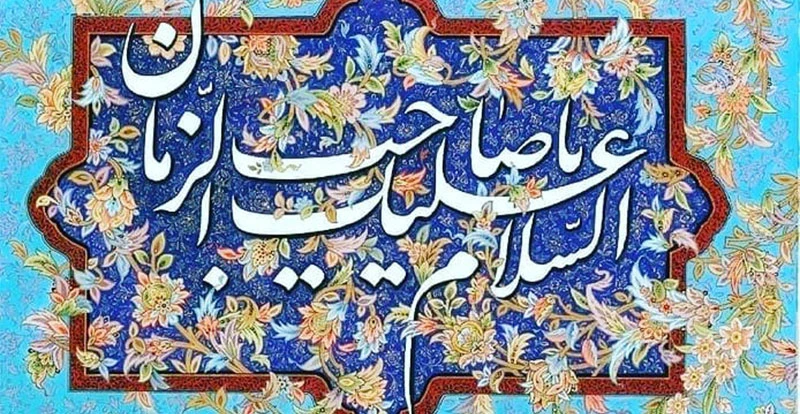 السلام علیک یا صاحب الزّمان